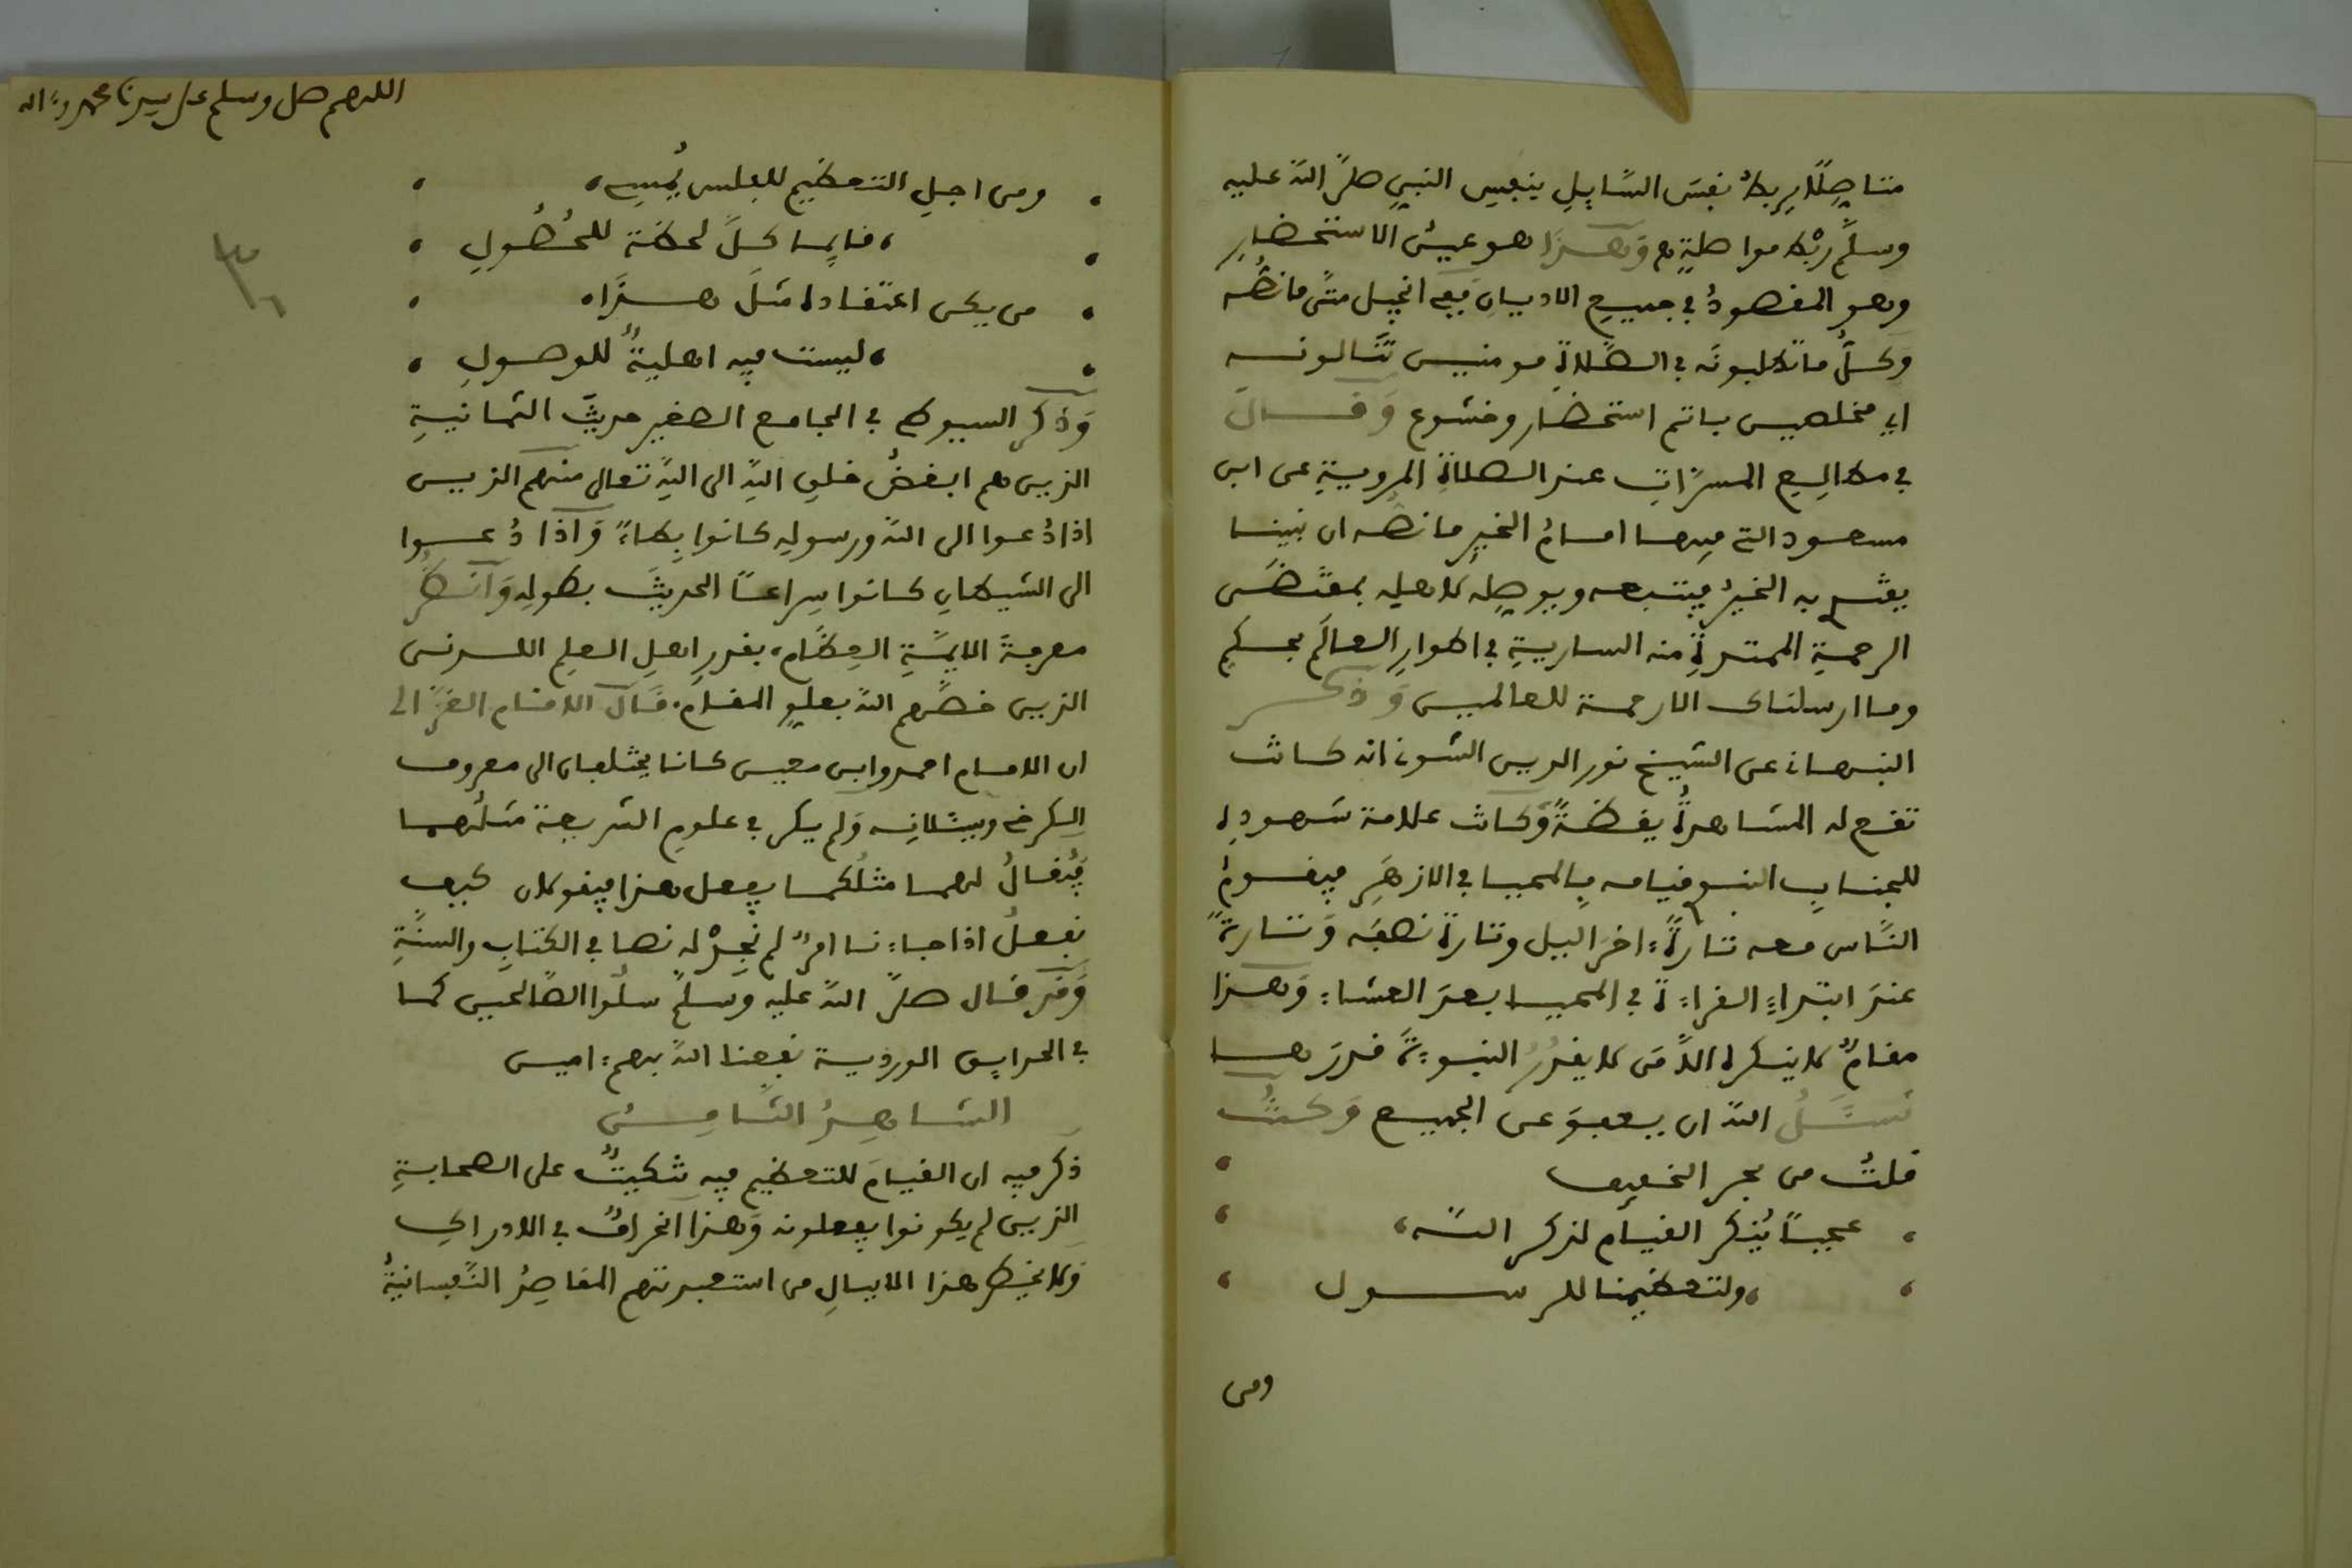 متاصلا يربط نفسَ السَّايلِ بنفس النبي صلَّى اللَّه عليه
وسلَّم ربْط مواصلةٍ وَهـــذا هو عيش الاستحضارِ
وهو المقصودُ في جميع الاديان ففي انجيل متَّى ما نصُّه
وَكــلُّ ما تطلبونَه في الصَّلاةِ مومنيـن تنَالونــه
اي مخلصيـن باتم استحضار وخشوع وَقــــالَ
في مطالِـع المسرَّاتِ عند الصلاةِ المرويةِ عن ابن
مسعود التي فيها امامُ الخيرِ ما نصُّه ان نبينا
يقتدى به الخيرُ فيتبعه ويوصلُه لاهلِه بمقتضَى
الرحمةِ الممتدةِ منه الساريةِ في اطوارِ العالَم بحكمِ
وما ارسلناك الا رحمة للعالميـن وَذكـــر
النبهاني عن الشيخ نور الدين الشوني انه كانت
تقع له المشاهدةُ يقظـةً وَكانت علامة شهودِه
للجنابِ النبوي قيامه بالمحيا في الازهرِ فيقـومُ
النَّاس معه تارةً ءاخر اليل وتارة نصفَه وَتـارةً
عندَ ابتداءِ القراءةِ في المحيـا بعدَ العشاء وَهـذا
مقامٌ لا ينكره الاَّ من لا يقدُرُ النبوءةَ قدرَهــا
نســئَلُ اللَّه ان يعفوَ عن الجميـع وَكـنتُ
قلتُ من بحر الخفيف
عجبـاً يُنكَر القيـام لذكر اللَّـه
ولتعظيمنا للرســـول
ومن
اللهم صل وسلم على سيدنا محمد وءاله
ومن اجلِ التعظيمِ للفلس يُمسِي
قايِما كـلَّ لحظة للحُصُولِ
من يكن اعتقاده مثـلَ هــذَا
ليست فيه اهليةٌ للوصـولِ
٣٠
وَذكر السيوطي في الجامع الصغير حديثَ الثمانيـةِ
الذين هم ابغضُ خلقِ اللَّهِ الى اللَّهِ تعالى منهم الذيـن
اذا دُعـوا الى اللَّه ورسولِه كانوا بِطاءً وَاذا دُعـوا
الى الشيطانِ كانوا سِراعـاً الحديثَ بطولِه وَانظر
معرفةَ الايمَّـةِ العِظَام، بقدرِ اهلِ العلم اللدنـى
الذين خصَّهم اللَّه بعلوِ المقام. قَالَ الامـام الغزَّالي
ان الامـام احمد وابن معيـن كانا يختلفان الى معروف
الكرخي ويسئلانِـه وَلم يكن في علومِ الشريعة مثلُهمـا
فَيُقـالُ لهمـا مثلُكمـا يفعل هذا فيقولان كيف
نفعـلُ اذا جاءنا امرٌ لم نجِدْه نصا في الكتابِ والسنَّةِ
وَقد قال صلَّى اللَّه عليه وسلمَ سلُوا الصَّالحيـن كمـا
في الحدايق الوردية نفعنا اللَّه بهم ءاميـن
الشــاهِـدُ الثَّـامِــنُ
ذكر فيه ان القيـامَ للتعظيم فيه تنكيتٌ على الصحابـةِ
الذين لم يكونوا يفعلونه وَهـذا انحرافٌ في الادراكِ
وَلا يخطر هذا الا ببـالِ من استعبدتهم المقاصدُ النَّفسانيـةُ